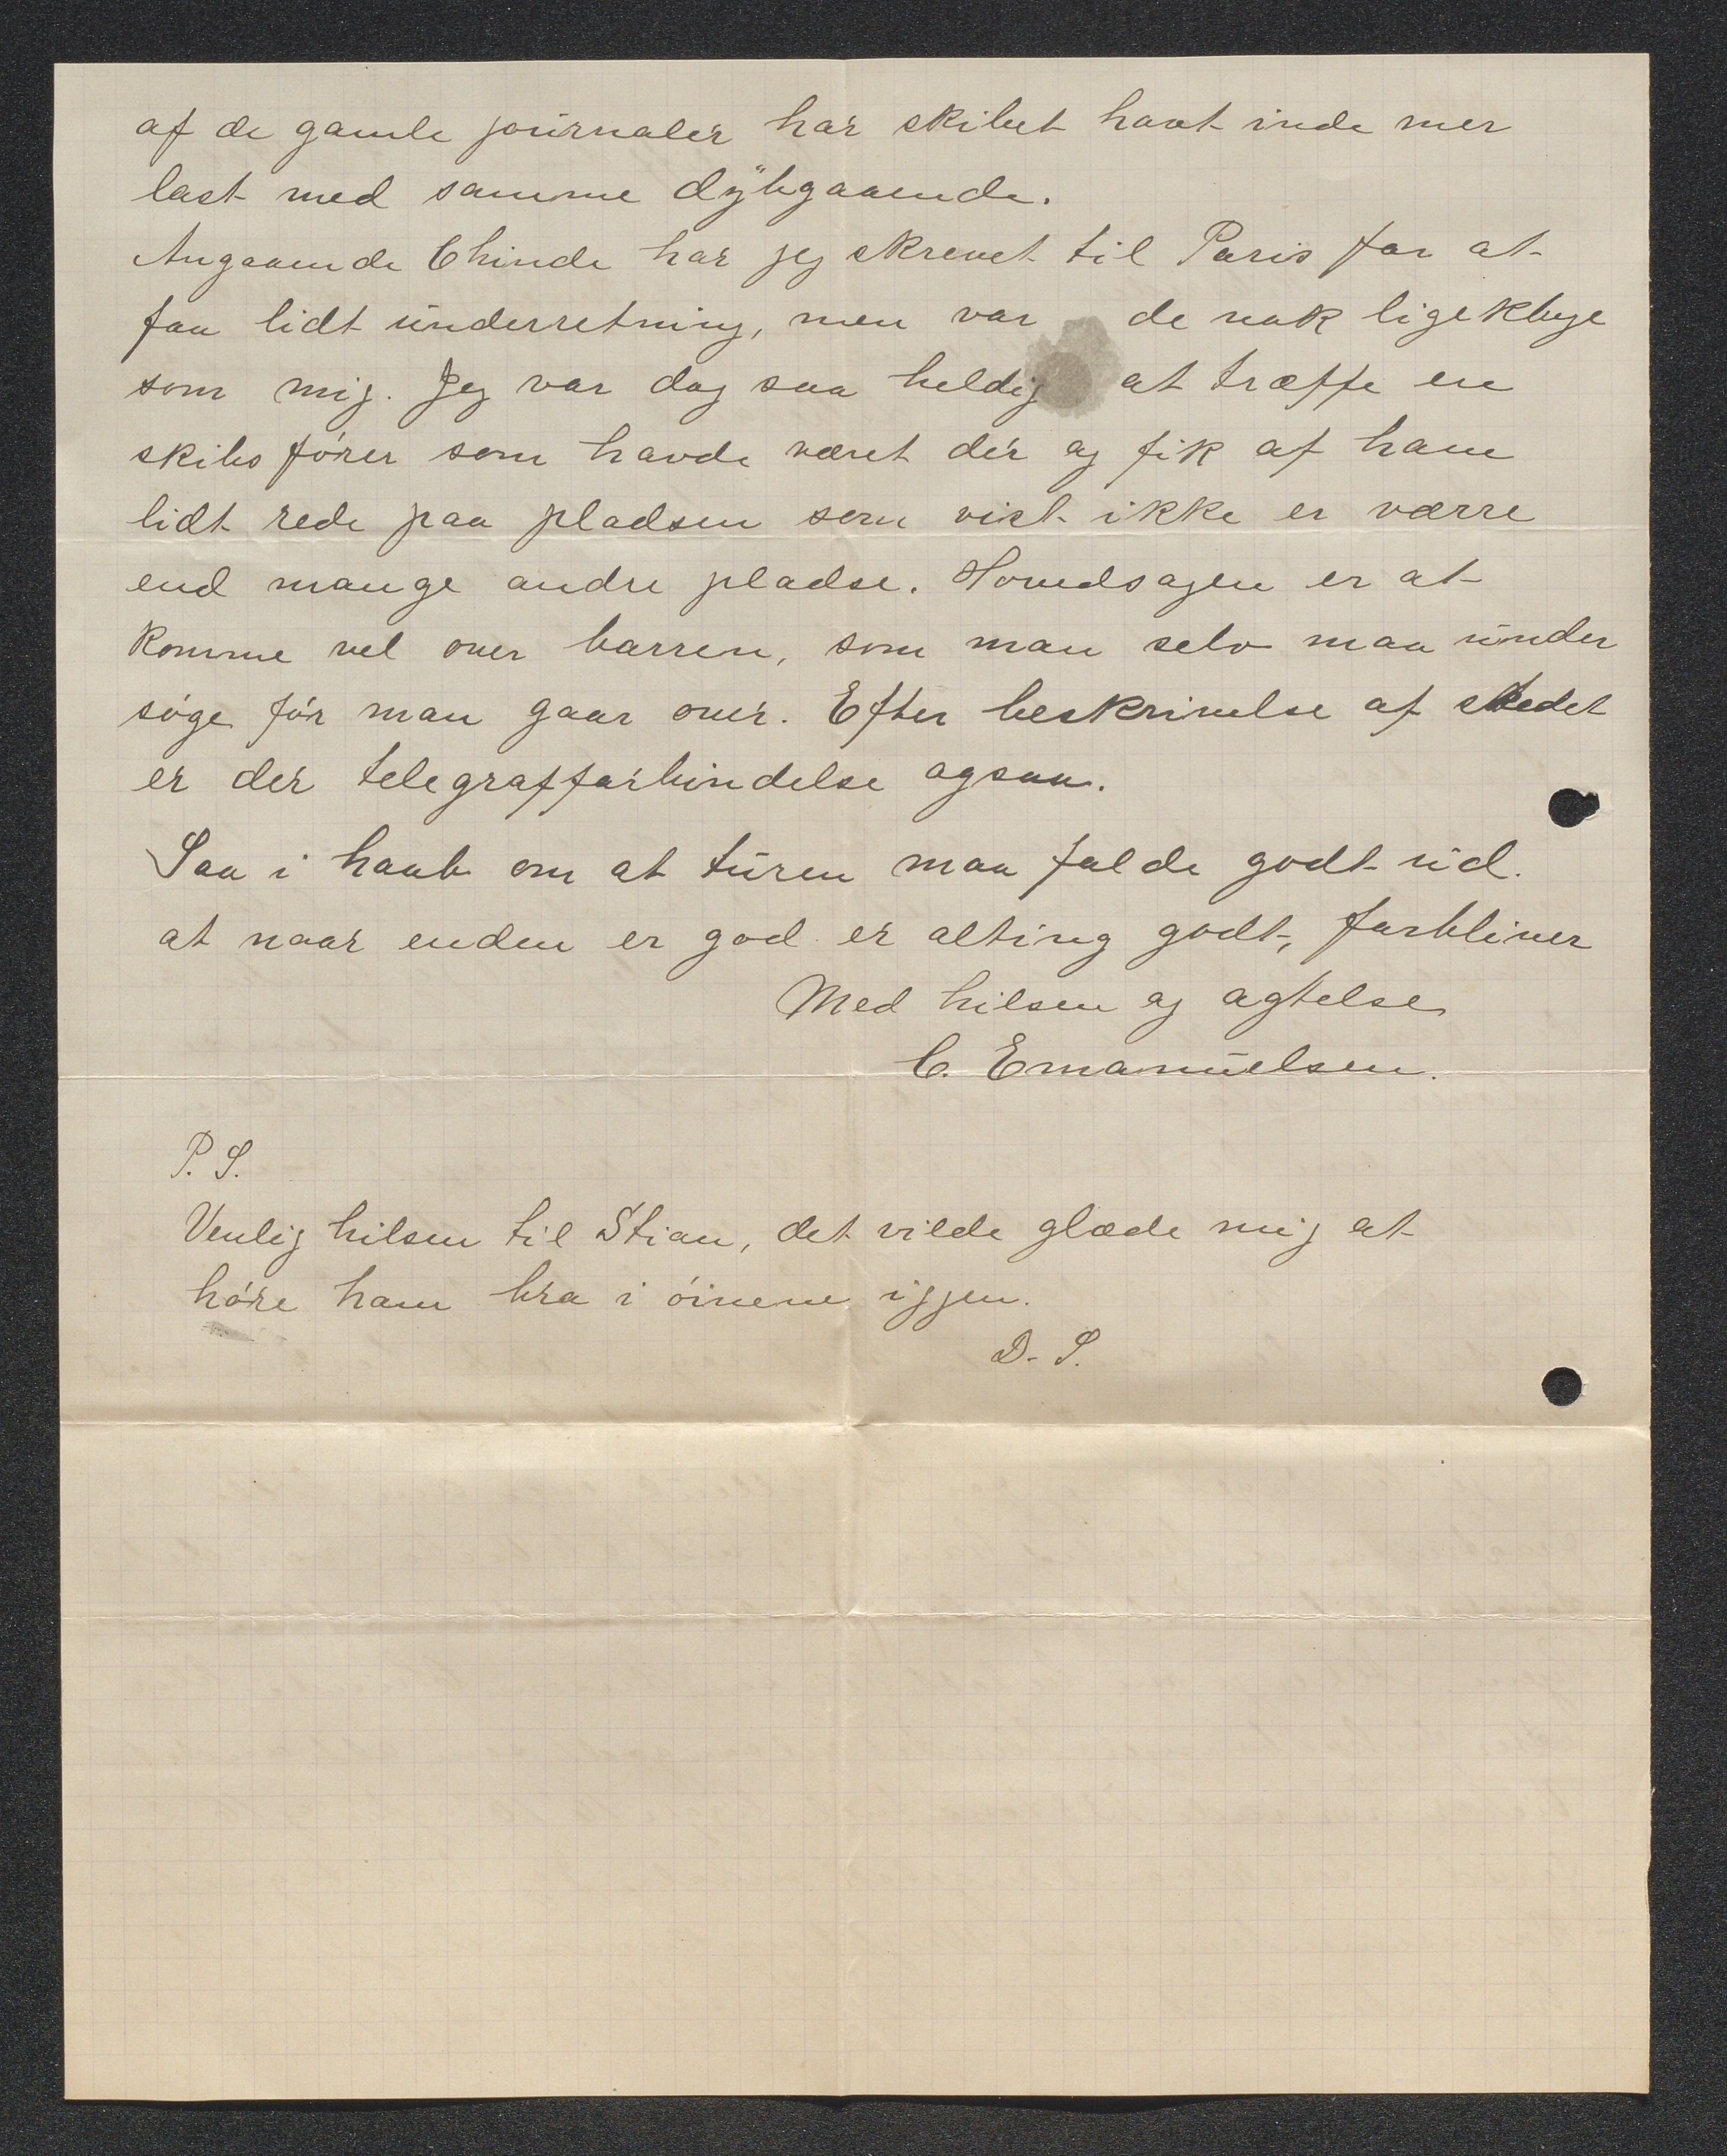 af de gamle journaler har skibet havt inde mer
last med samme dybgaaende.
Angaaende Chinde har jeg skrevet til Paris for at
faa lidt underretning, men var de nok ligekloge
som mig. Jeg var dog saa heldig at træffe en
skibsfører som havde været der og fik af ham
lidt rede paa pladsen som vist ikke er værre
end mange andre pladse. Hovedsagen er at
komme vel over barren, som man selv maa under
søge før man gaar over. Efter beskrivelse af stedet
er der telegrafforbindelse ogsaa.
Saa i haab om at turen maa falde godt ud.
at naar enden er god er alting godt, forbliver
Med hilsen og agtelse
C. Emanuelsen.
P. S.
Venlig hilsen til Stian, det vilde glæde mig at
høre ham bra i øinene iggen.
D. S.